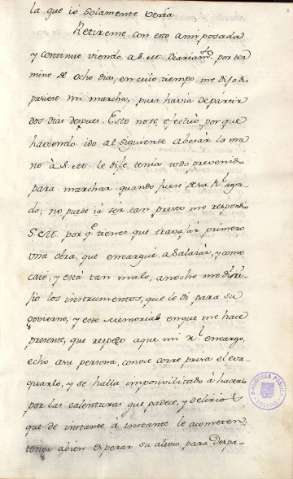 la que io solamente veria
Retireme con esto ami posada
y continue viendo a S.M. Diariam.te por ter
mino de ocho dias, en cuio tiempo me dijo dis
pusiese mi marcha, pues havia de partir
dos dias depues. Esto no se ejecutò, por que
haviendo ido al siguiente a besar la ma
no à S.M. le dije tenia todo prevenido
para marchar quando fuese de su R.l agra
do; no puede ià ser tan presto me respondio
S.M. por q.e tienes que travajar primero
una obra, que encarguè a Salazar, y como
caiò, y està tan malo, anoche me
los instrumentos, que le di para su
govierno, y este Memorial en que me hace
presente, que respecto a que mi R.l encargo,
echo a su persona, corre priva el eva
quarlo, y se halla imposivilitado de hacerlo
por las calenturas que padece, y delirio
que de instante a instante le acometen
tenga abien esperar su alivio, para Despa-